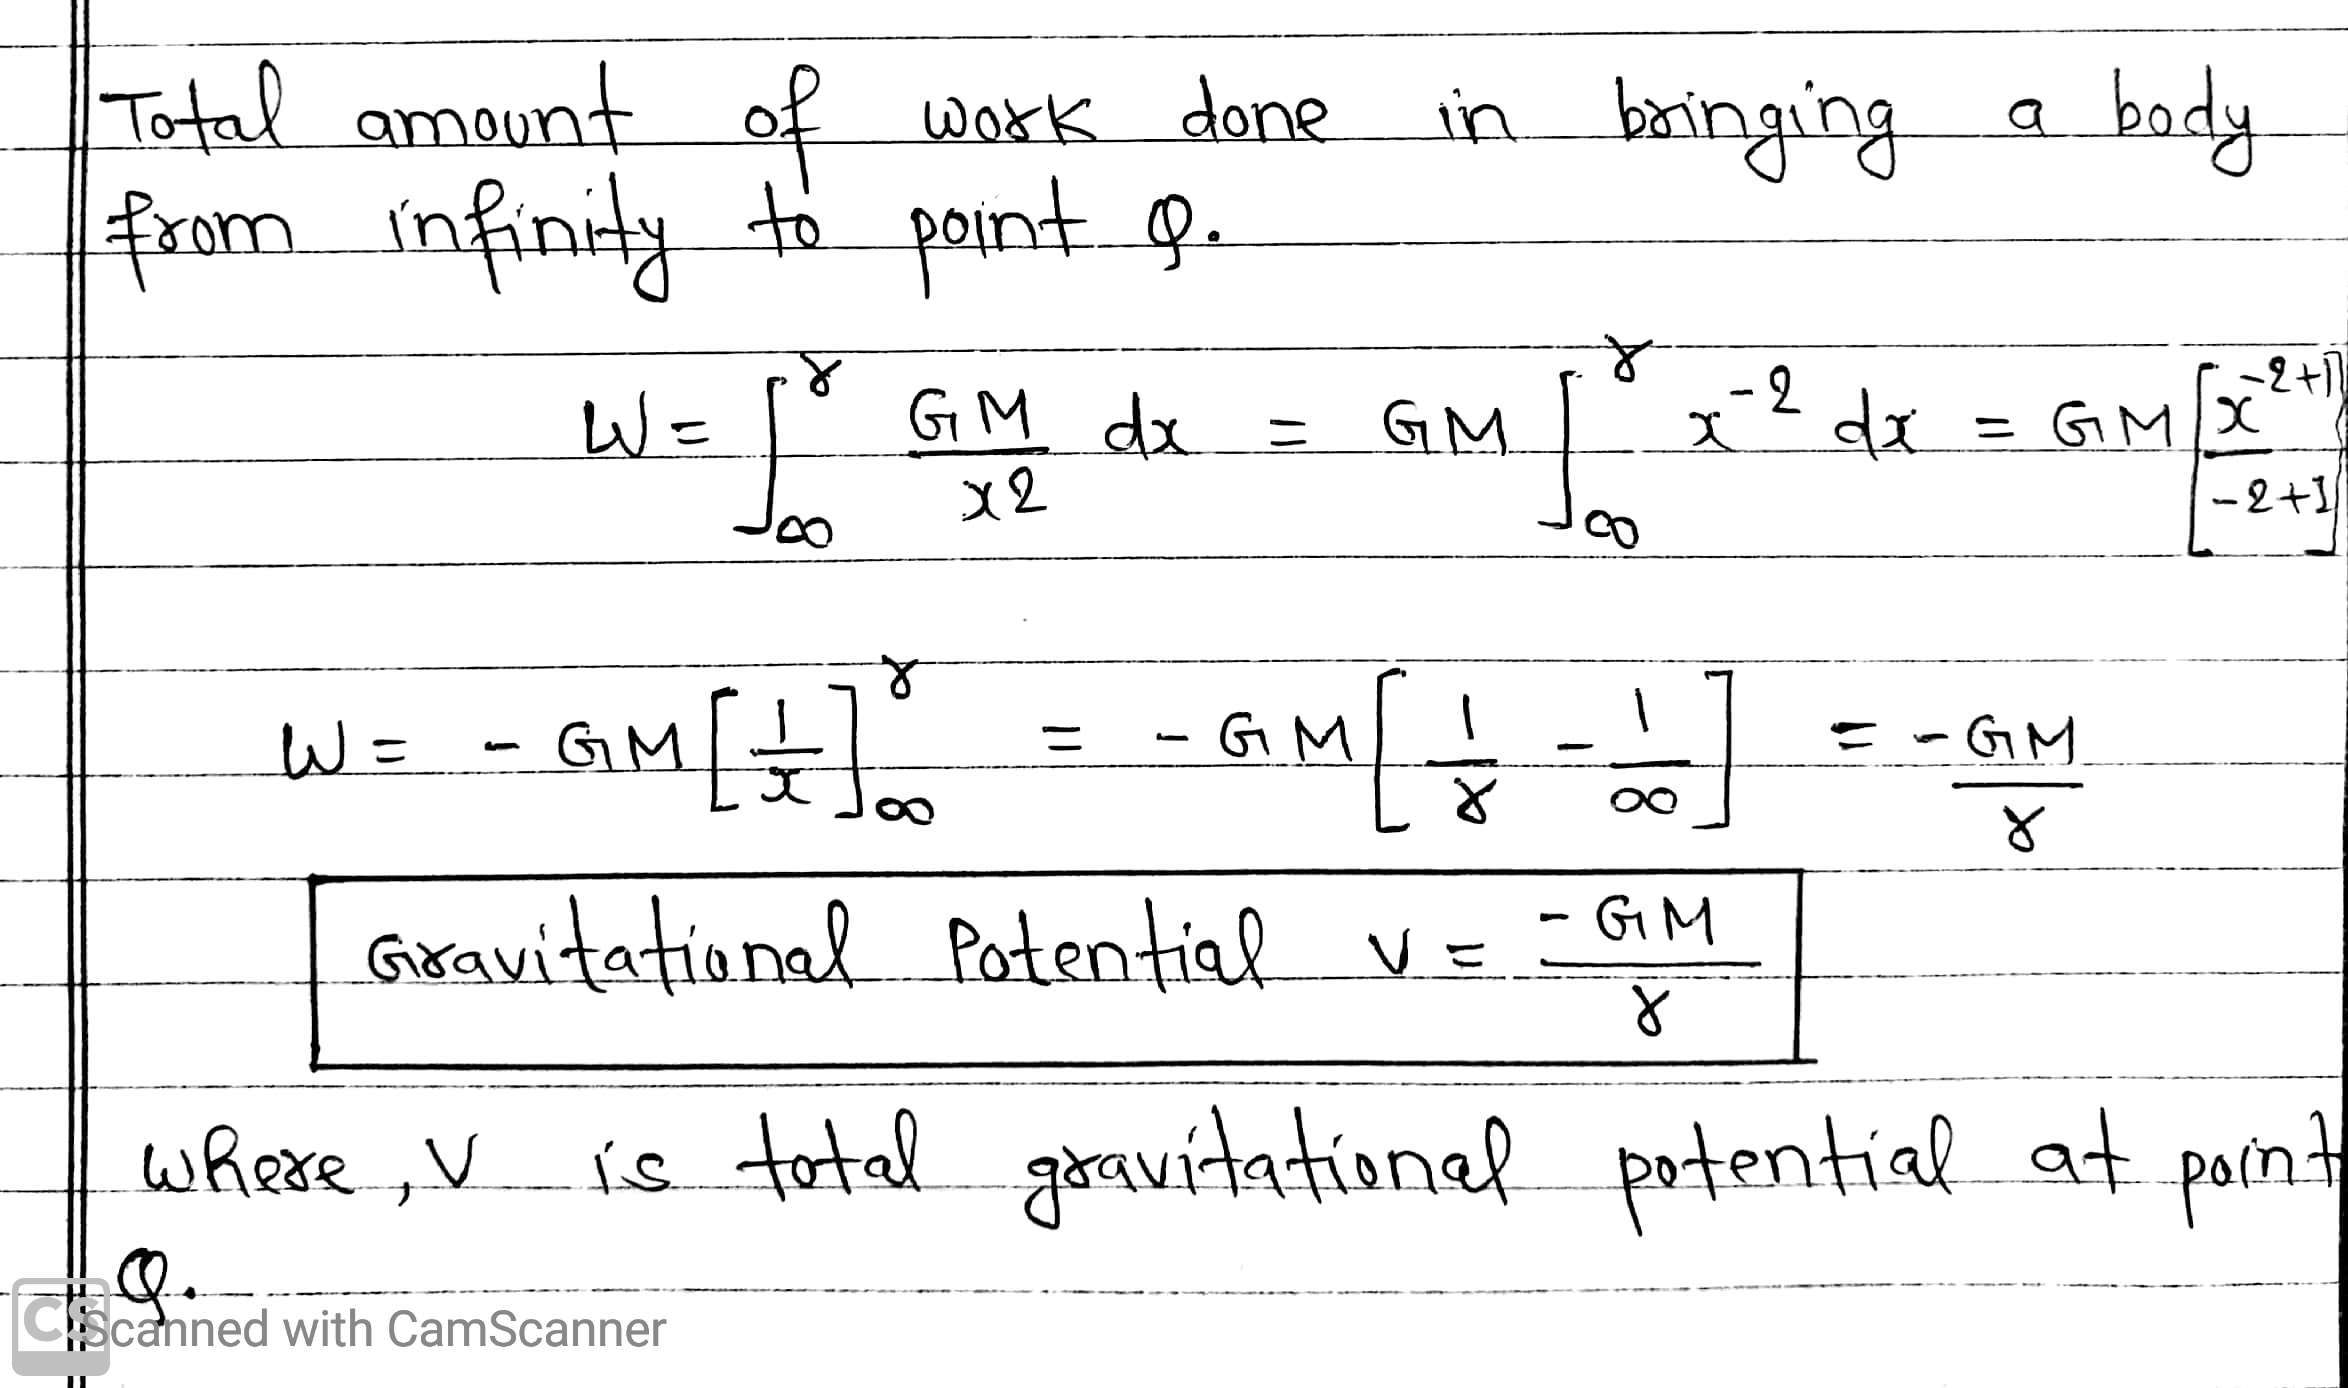 Total amount of work done in bringing a body
from infinity to point Q.
W = ∫_∞^r GM/x2 dx = GM ∫_∞^r x^-2 dx = GM [x^-2+1/-2+1]
W = - GM [1/x]_∞^r = - GM [1/r - 1/∞] = - GM/r
Gravitational Potential V = - GM/r
where, V is total gravitational potential at point
Q.
CS Scanned with CamScanner